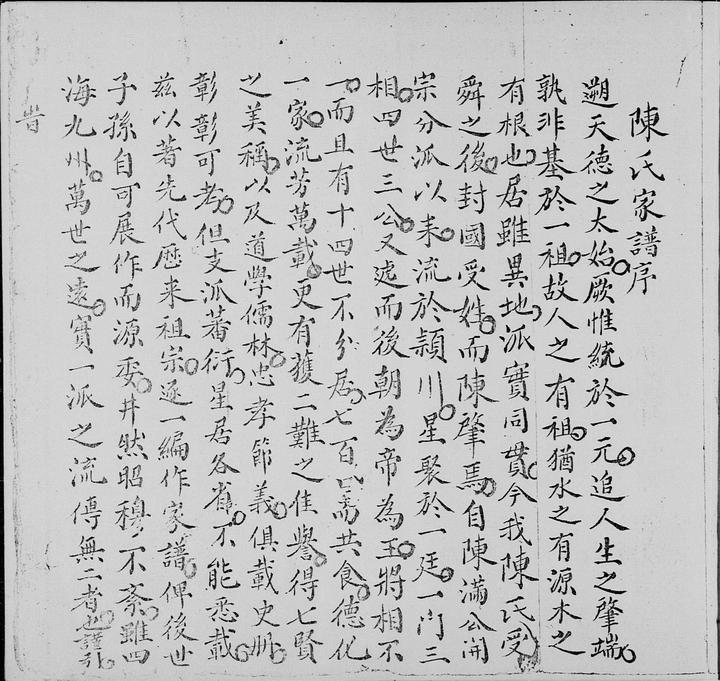 陳氏家譜序
遡天德之太始厥惟統於一元追人生之肇端
孰非基於一祖故人之有祖猶水之有源木之
有根也居雖異地派實同貫今我陳氏受
舜之後封國受姓而陳肇焉自陳滿公開
宗分派以来流於潁川星聚於一廷一门三
相四世三公又迯而後朝為帝為王將相不
一而且有十四世不分居七百口而共食德化
一家流芳萬載更有獲二難之佳譽得七賢
之美稱以及道學儒林忠孝節義俱載史册
彰彰可考但支派蕃衍星居各省不能悉載
兹以著先代歷来祖宗逐一編作家譜俾後世
子孫自可展作而源委井然昭穆不紊雖四
海九州萬世之遠實一派之流傳無二者也謹引
旹